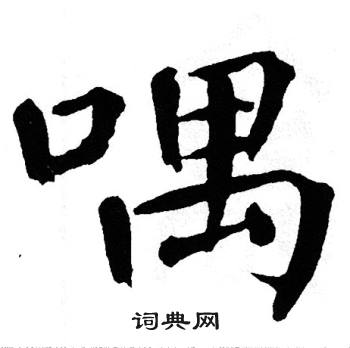 喁
词典网